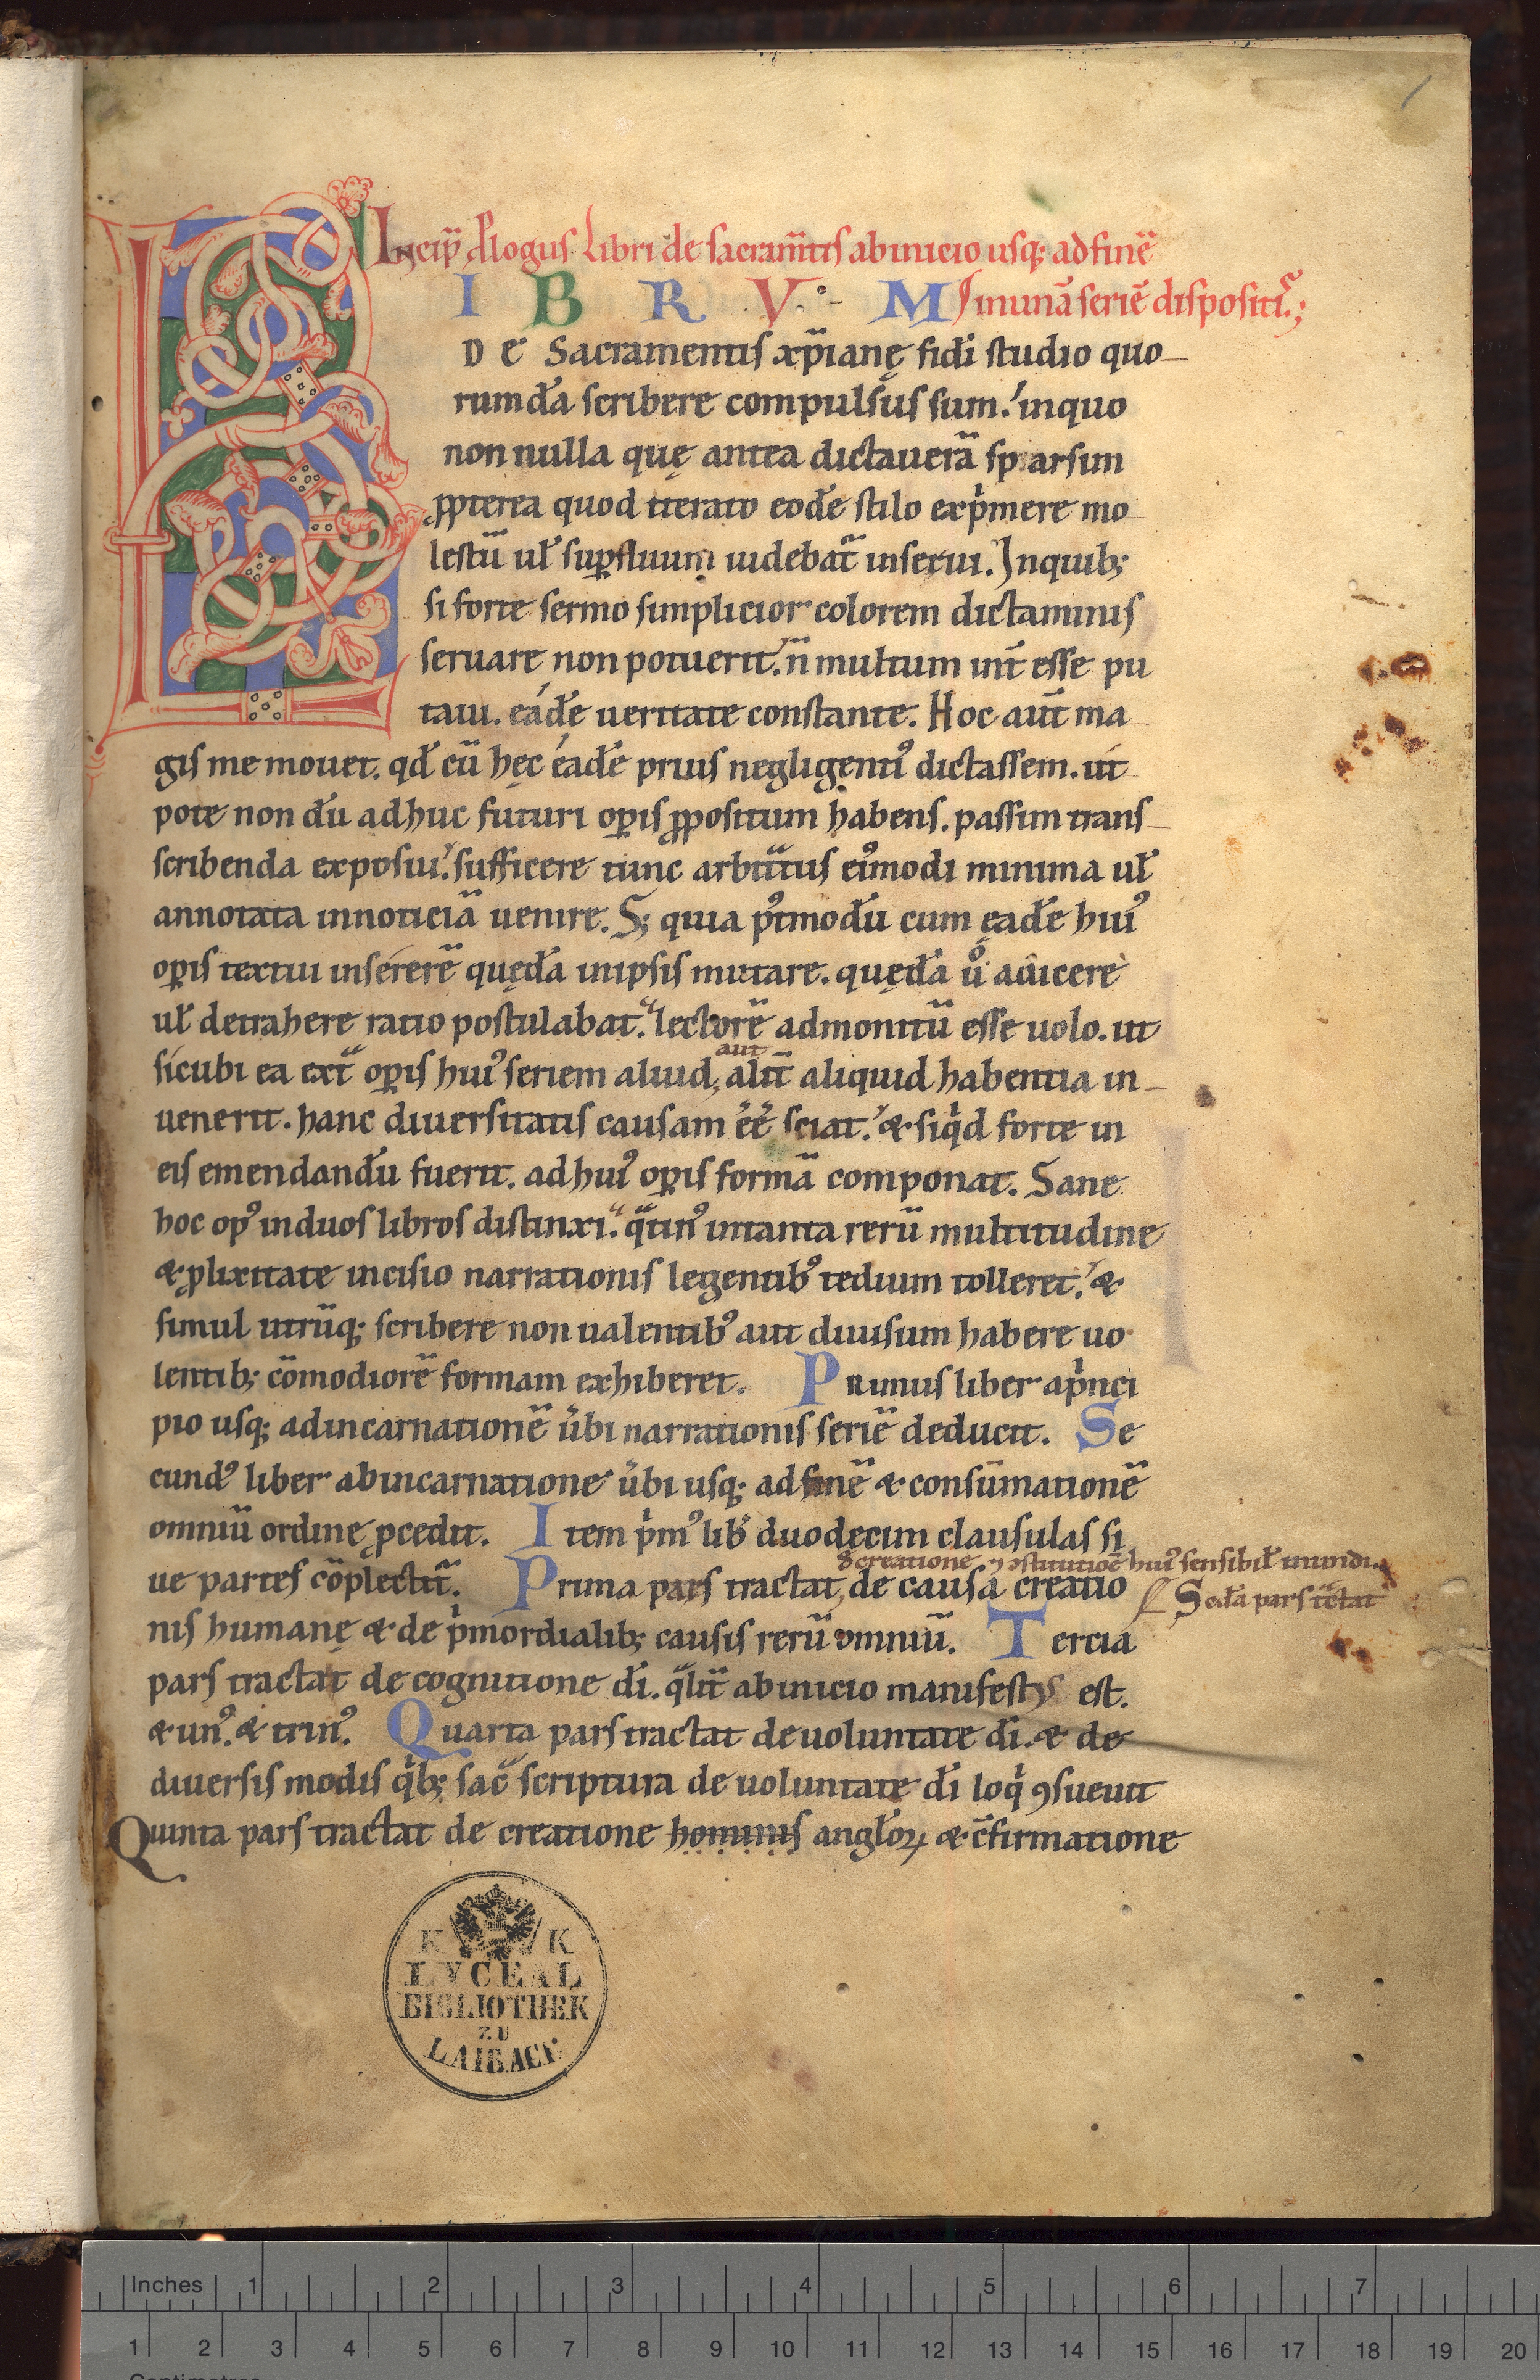 Incip̄ ꝓlogus libri de sacram̄tis ab inicio usq; ad finē
L I B R V M in unā seriē dispositꝰ;
DE Sacramentis xp̄ianę fidei studio quo
rumdā scribere compulsus sum. in quo
non nulla quę antea dictauerā sparsim
ꝓpterea quod iterato eodē stilo exp̍mere mo
lestū uł suꝑfluum uidebat̄ inserui. Inquib;
si forte sermo simplicior colorem dictaminis
seruare non potuerit. n̄ multum int̄ esse pu
taui. eadē ueritate constante. Hoc aut̄ ma
gis me mouet. qđ cū hęc eadē prius negligentiꝰ dictassem. ut
pote non dū adhuc futuri oꝑis ꝓpositum habens. passim trans
scribenda exposui. sufficere tunc arbit̄tus eiꝰmodi minima uł
annotata in noticiā uenire. S; quia pꝰtmodū cum ęadē huiꝰ
oꝑis textui insererē quędā in ipsis mutare. quędā uͦ adicere
uł detrahere ratio postulabat. lectorē admonitū esse uolo. ut
sicubi ea ext̄ oꝑis huiꝰ seriem aliud, aut alit̄ aliquid habentia in
uenerit. hanc diuersitatis causam ēē sciat. & siq̍d forte in
eis emendandū fuerit. ad huiꝰ oꝑis formā componat. Sane
hoc opꝰ in duos libros distinxi. q̄tinꝰ in tanta rerū multitudine
& ꝓlixitate incisio narrationis legentibꝰ tedium tolleret. &
simul utrūq; scribere non ualentibꝰ aut diuisum habere uo
lentib; cōmodiorē formam exhiberet. Primus liber a p̍nci
pio usq; ad incarnationē ūbi narrationis seriē deducit. Se
cundꝰ liber ab incarnatione ūbi usq; ad finē & consūmationē
omniū ordine ꝓcedit. Item p̍mꝰ lib̄ duodecim clausulas si
ue partes cōplectit̄. Prima pars tractat, de causa creatio
de creatione ⁊ ꝯstitutiōe huiꝰ sensibił mundi.
Secd̄a pars t̄ctat
nis humanę & de p̍mordialib; causis rerū omniū. Tercia
pars tractat de cognitione di. q̄lit̄ ab inicio manifestꝰ est.
& unꝰ. & trinꝰ. Quarta pars tractat de uoluntate di. & de
diuersis modis q̍b; sac̄ scriptura de uoluntate di loq̍ ꝯsueuit
Quinta pars tractat de creatione hominis angłoꝝ & c̄firmatione
K K
LYCEAL
BIBLIOTHEK
ZU
LAIBACH
Inches 1 2 3 4 5 6 7
1 2 3 4 5 6 7 8 9 10 11 12 13 14 15 16 17 18 19 20